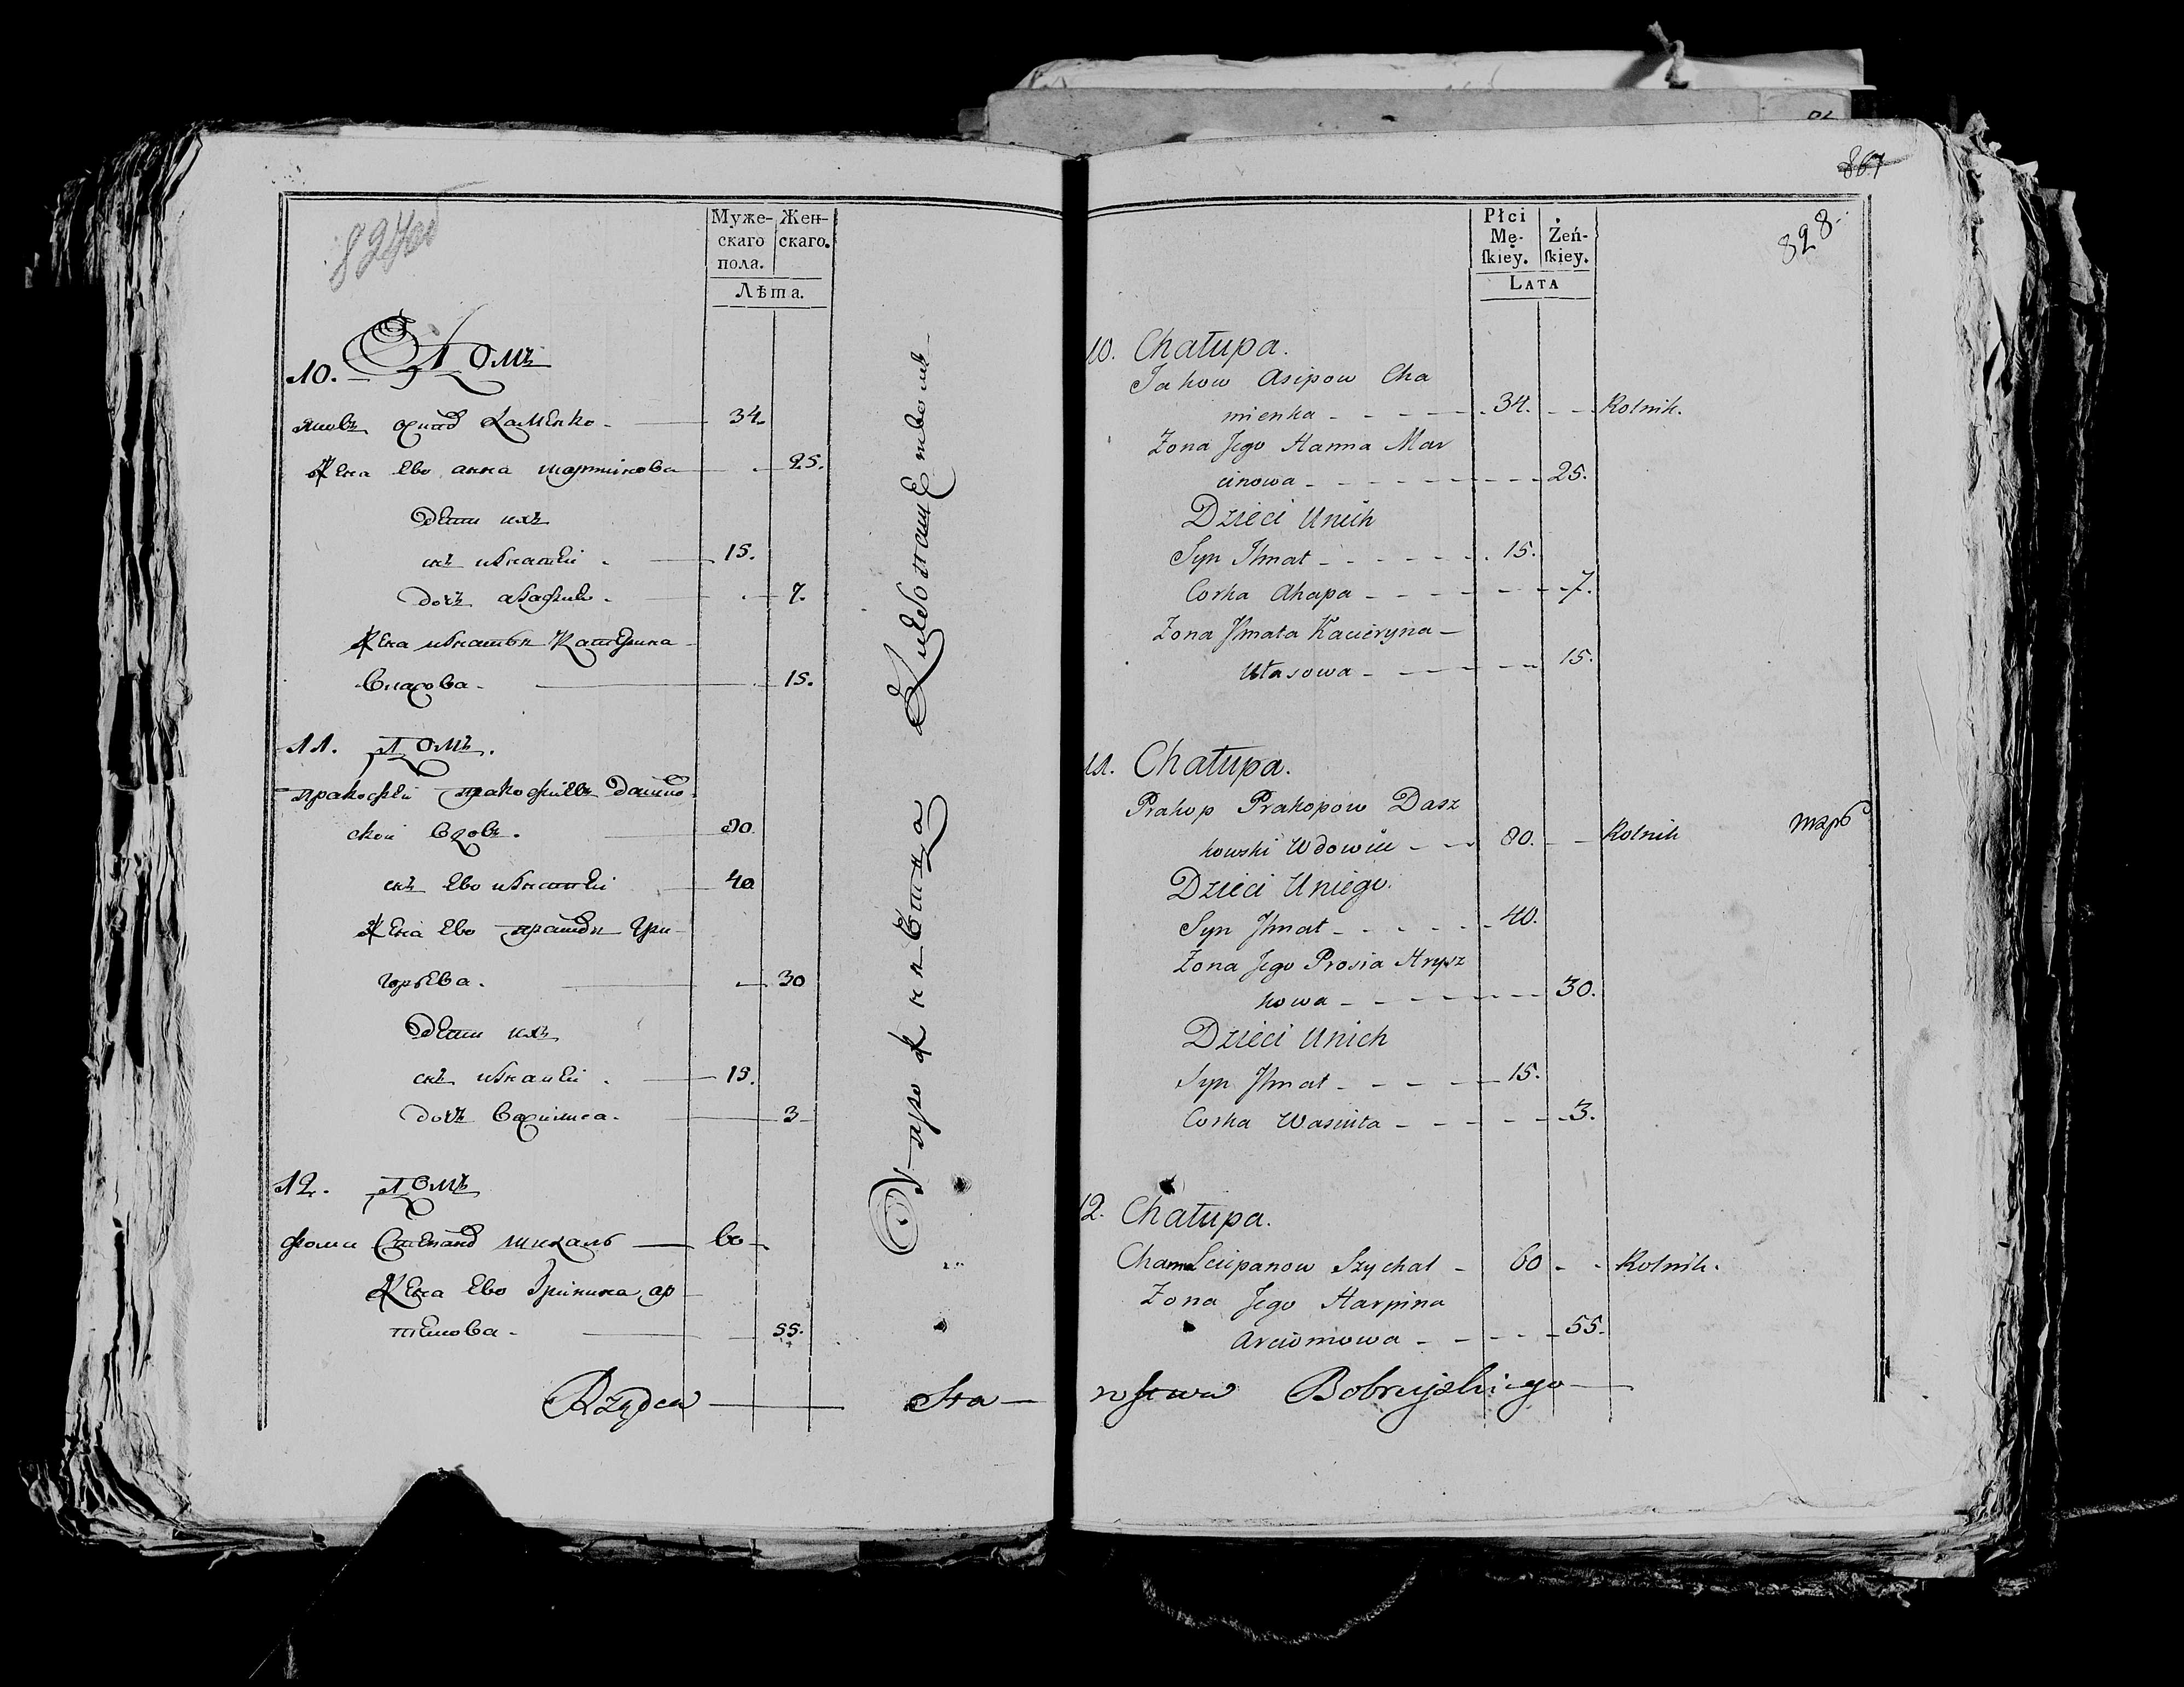 827об
Муже-
скаго
пола.
Жен-
скаго.
Лѣта.
10. Домъ
Яковъ Осипо Хаменко 34.
Жена Ево анна мартинова 25.
Дети ихъ
снъ игнатей 15.
дочъ агафия 7.
Жена игнатья Катерина
Власова 15.
11. Домъ.
прокофей прокофиевъ Дашко
ской вдовъ. 80.
снъ Ево игнатей 40
Жена Ево Гри
горьева. 30
Дети ихъ
снъ игнатей 15.
дочъ Василиса. 3
12. Домъ
фома Степано шихаль 60
Жена Ево ар
темова 55.
Rządca Sta
867
828.
Płci
Mę-
ſkiey.
Żeń-
ſkiey.
LATA
10. Chałupa.
Jakow Asipow Cha
mienka 34. Rolnik.
Zona Jego Hanna Mar
cinowa 25.
Dzieci Unich
Syn Ihnat 15.
Corka Ahapa 7.
Zona Ihnata Kacieryna
Ułasowa 15.
11. Chałupa.
Prakop Prakopow Dasz
kowski Wdowiec 80. Rolnik
Dzieci Uniego.
Syn Ihnat 40.
Zona Jego Prosia Hrysz
kowa 30.
Dzieci Unich
Syn Ihnat 15.
Corka Wasiuta 3.
12. Chałupa.
Chama Sciepanow Szychal 60 Rolnik.
Zona Jego Harpina
Arciomowa 55.
rostwa Bobruyskiego